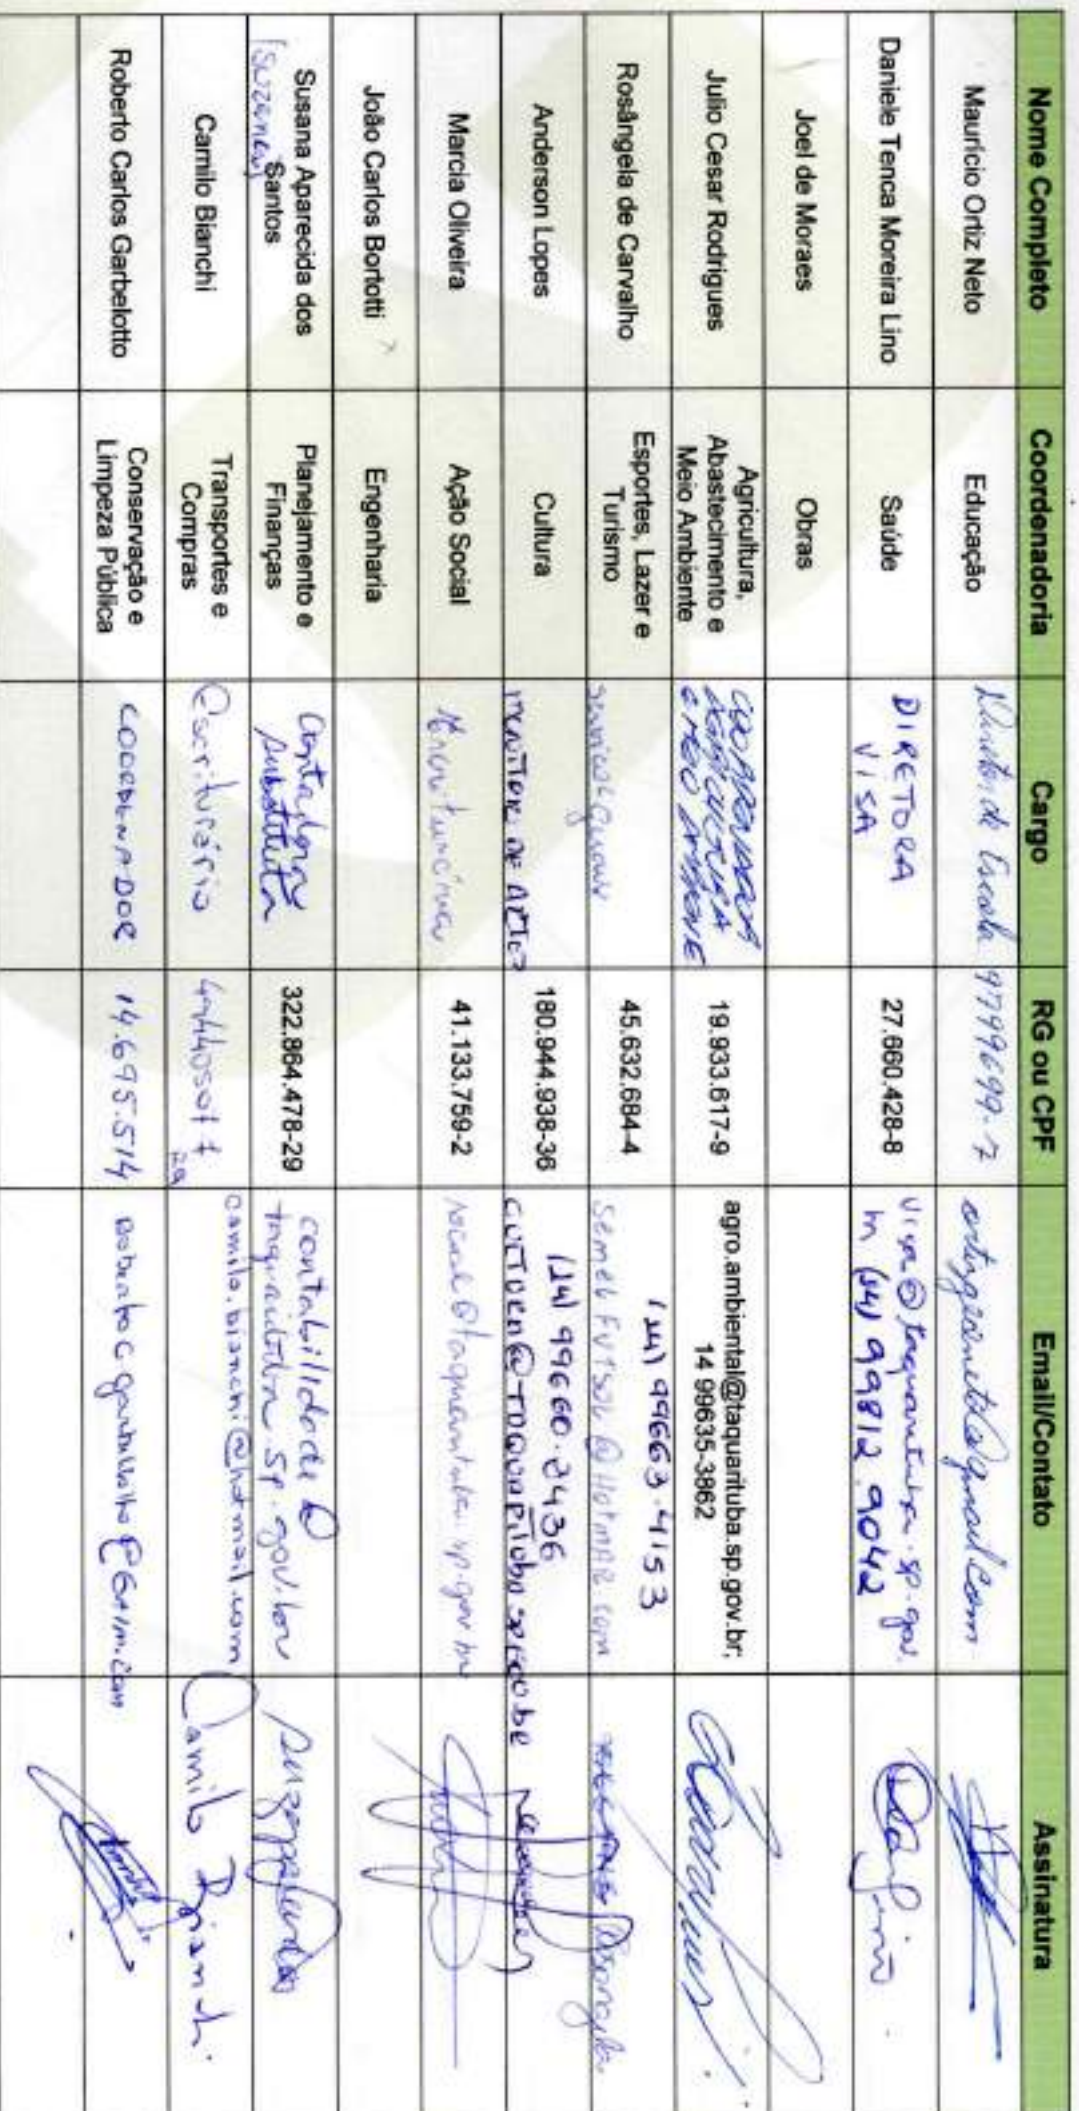 Nome Completo Coordenadoria Cargo RG ou CPF Email/Contato Assinatura
Maurício Ortiz Neto Educação Diretor de Escola 97996699-7
Daniele Tenca Moreira Lino Saúde DIRETORA VISA 27.660.428-8 visa@taquarituba.sp.gov. (14) 99812.9042
Joel de Moraes Obras
Julio Cesar Rodrigues Agricultura, Abastecimento e Meio Ambiente 19.933.617-9 agro.ambiental@taquarituba.sp.gov.br; 14 99635-3862
Rosângela de Carvalho Esportes, Lazer e Turismo 45.632.684-4 (14) 99663-4153
Anderson Lopes Cultura MONITOR DE ARTES 180.944.938-36 (14) 99660.2436
Marcia Oliveira Ação Social 41.133.759-2 social@taquarituba.sp.gov.br
João Carlos Bortotti Engenharia
Susana Aparecida dos Santos (Suzana) Planejamento e Finanças Contadora substituta 322.864.478-29 contabilidade@taquarituba.sp.gov.br
Camilo Bianchi Transportes e Compras Escriturário camilo.bianchi@hotmail.com Camilo Bianchi
Roberto Carlos Garbelotto Conservação e Limpeza Pública COORDENADOR 14.695.514